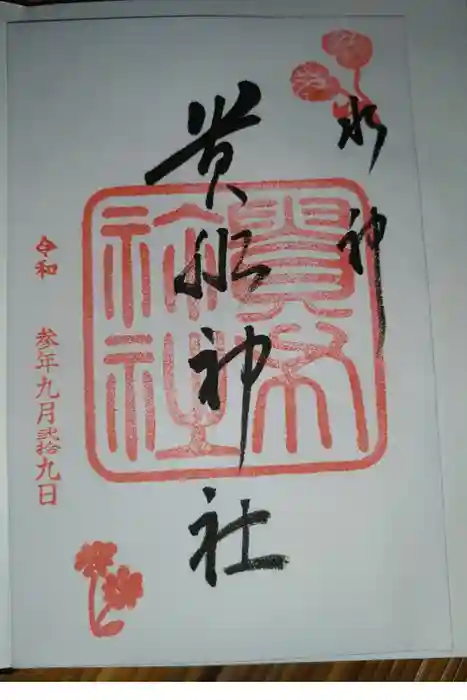 水神
貴船神社
貴布
祢社
令和 参年九月弐拾九日